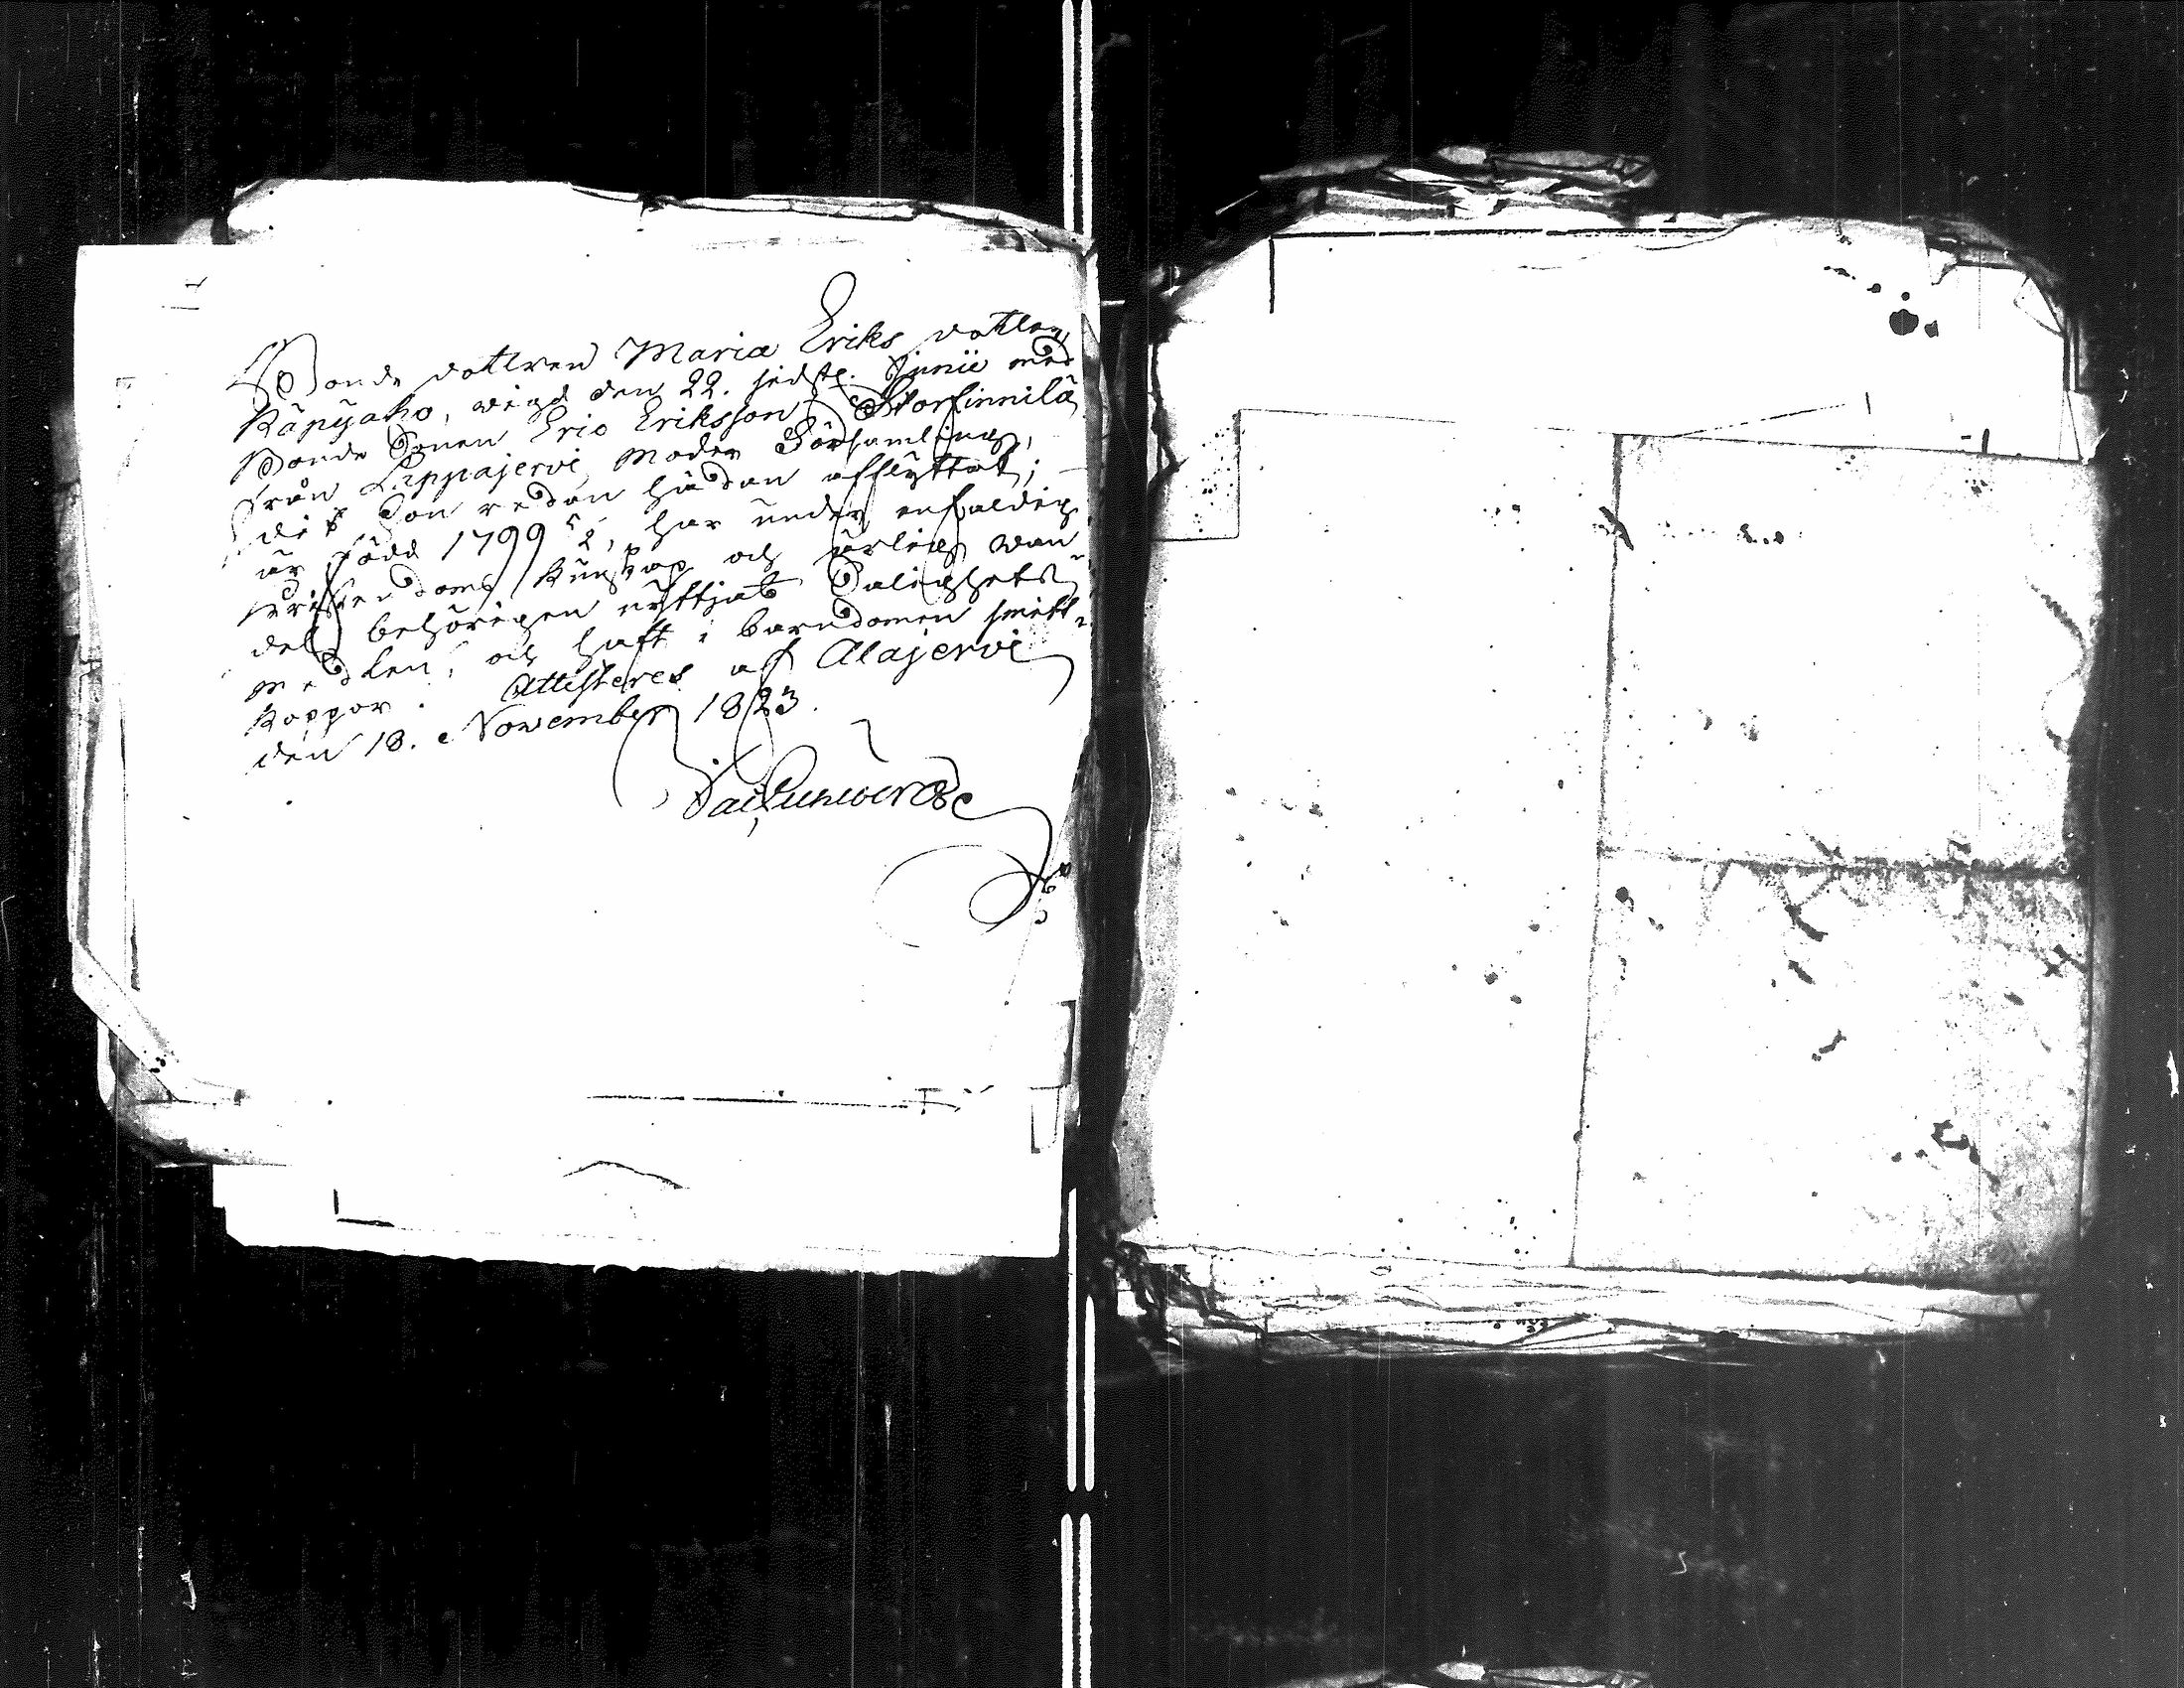 Bonde dottren Maria Eriks dotter
Käpyaho, wigd den 22. sidstl. Junii med
Bonde Sonen Eric Eriksson Storfinnilä
från Lappajervi Moder Församling,
dit hon redan hädan afflyttat;
är född 1799 5/2, har under enfaldig
Christendoms kunskap och ärlig wan-
del behörigen nyttjat Salighets
medlen, och haft i barndomen smitt-
koppor. Attesteres af Alajervi
den 18. November 1823.